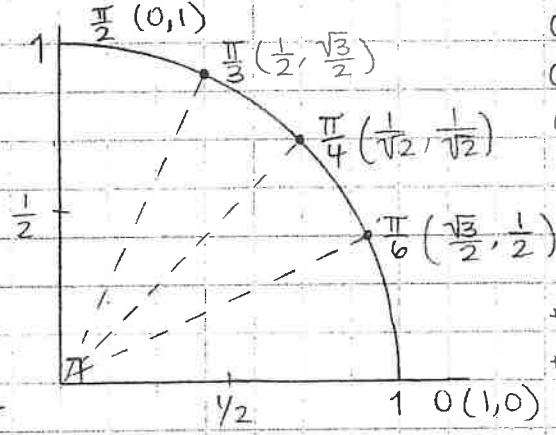 π/2 (0,1)
1
π/3 (1/2, √3/2)
π/4 (1/√2, 1/√2)
1/2
π/6 (√3/2, 1/2)
1/2
1 0(1,0)